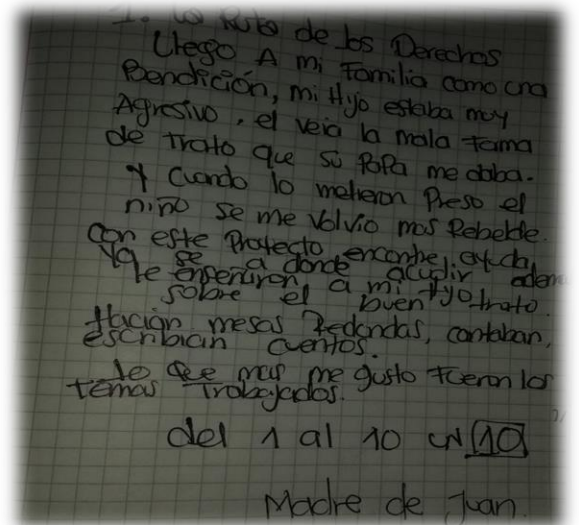 1. La Ruta de los Derechos
Llego A mi Familia como una
Bendición, mi Hijo estaba muy
Agresivo, el veia la mala Fama
de Trato que su PaPa me daba.
Y cuando lo metieron Preso el
niño se me Volvio mas Rebelde.
Con este Proyecto encontre ayuda,
Ya se a donde acudir adema
le enseñaron a mi Hijo
sobre el buen trato.
Hacian mesas Redondas, contaban,
escribian cuentos.
lo que mas me gusto Fueron los
temas Trabajados.
del 1 al 10 un 10
Madre de Juan.